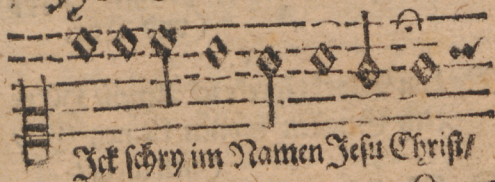 Ick schry im Namen Jesu Christ/